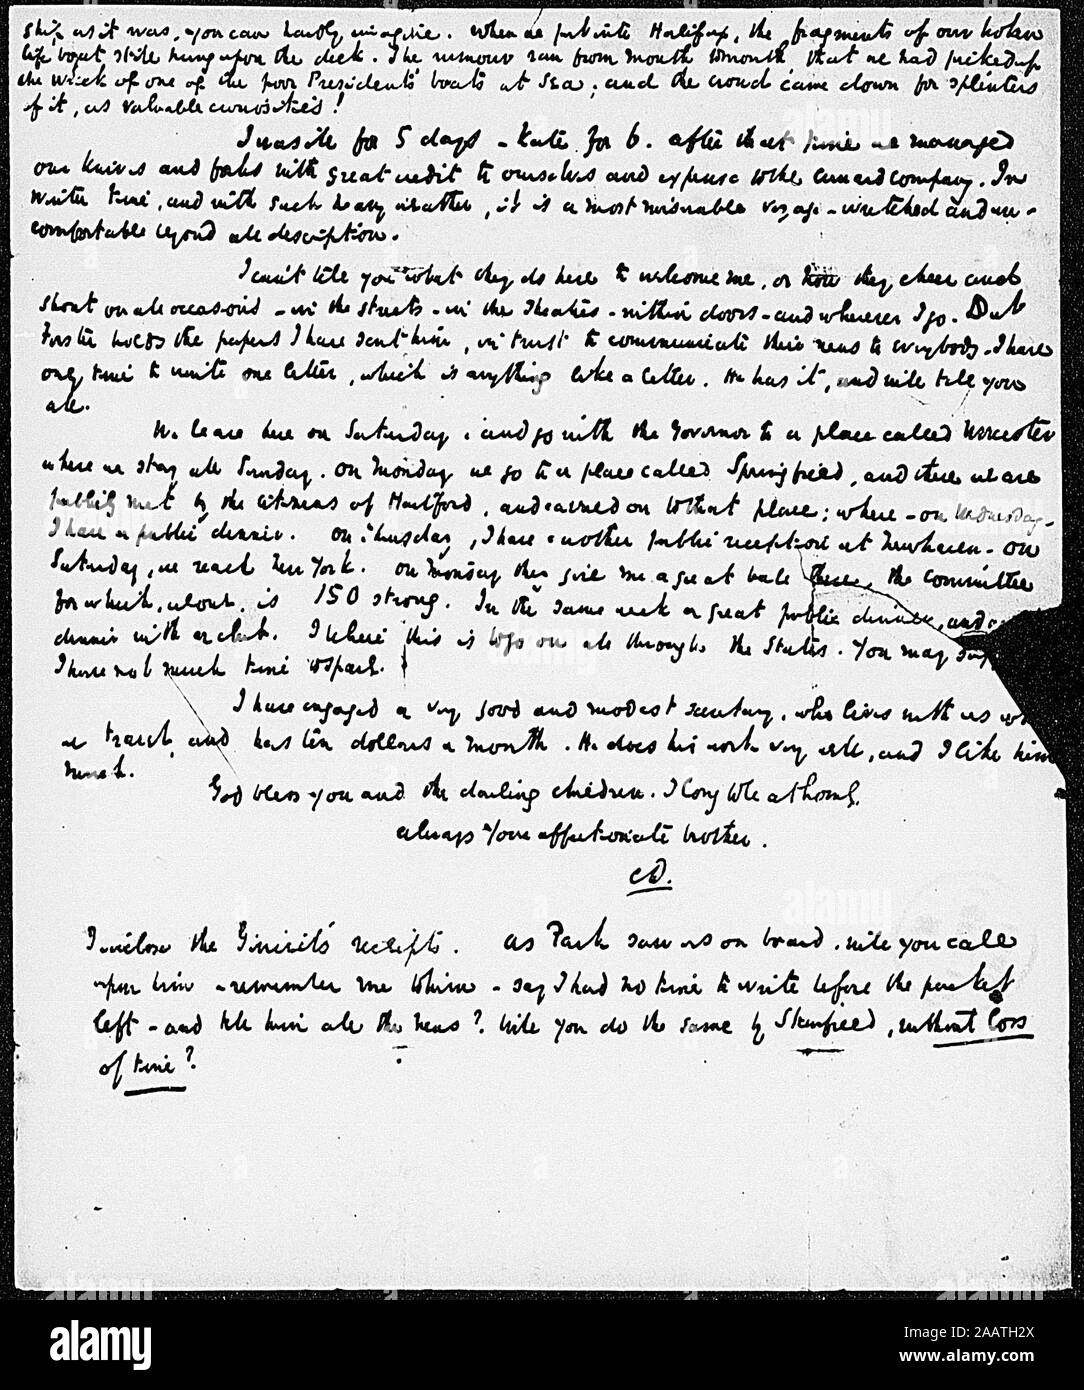 ship as it was, you can hardly imagine. When we put into Halifax, the fragments of our broken
life boat still hung upon the deck. The rumour ran from mouth to mouth that we had picked up
the wreck of one of the poor Presidents' boats at sea; and the crowd came down for splinters
of it, as valuable curiosities!
I was ill for 5 days - Kate for 6. After that time we managed
our knives and forks with great credit to ourselves and expense to the Cunard company. In
winter time, and with such heavy weather, it is a most miserable voyage - wretched and un-
comfortable beyond all description.
I can't tell you what they do here to welcome me, or how they cheer and
shout on all occasions - in the streets - in the Theatres - within doors - and wherever I go. But
Forster holds the papers I have sent him, in trust to communicate their news to everybody. I have
only time to write one letter, which is anything like a letter. He has it, and will tell you
all.
We leave here on Saturday; and go with the Governor to a place called Worcester
where we stay all Sunday. On Monday we go to a place called Springfield, and there we are
publicly met by the citizens of Hartford, and carried on to that place; where - on Wednesday -
I have a public dinner. On Thursday, I have another public reception at Newhaven - on
Saturday, we reach New York. On Monday they give me a great ball there, the committee
for which, alone, is 150 strong. In the same week a great public dinner, and a
dinner with a club. I believe this is to go on all through the States. You may say
I have not much time to spare.
I have engaged a very good and modest secretary, who lives with us
we travel, and has ten dollars a month. He does his work very well, and I like him
much.
God bless you and the darling children. I long to be at home.
Always Your affectionate brother.
CD.
I enclose the receipts. As Park saw us on board, will you call
upon him - remember me to him - say I had no time to write before the packet
left - and tell him all the news? Will you do the same by Stanfield, without loss
of time?
alamy
Image ID: 2AATH2X
www.alamy.com